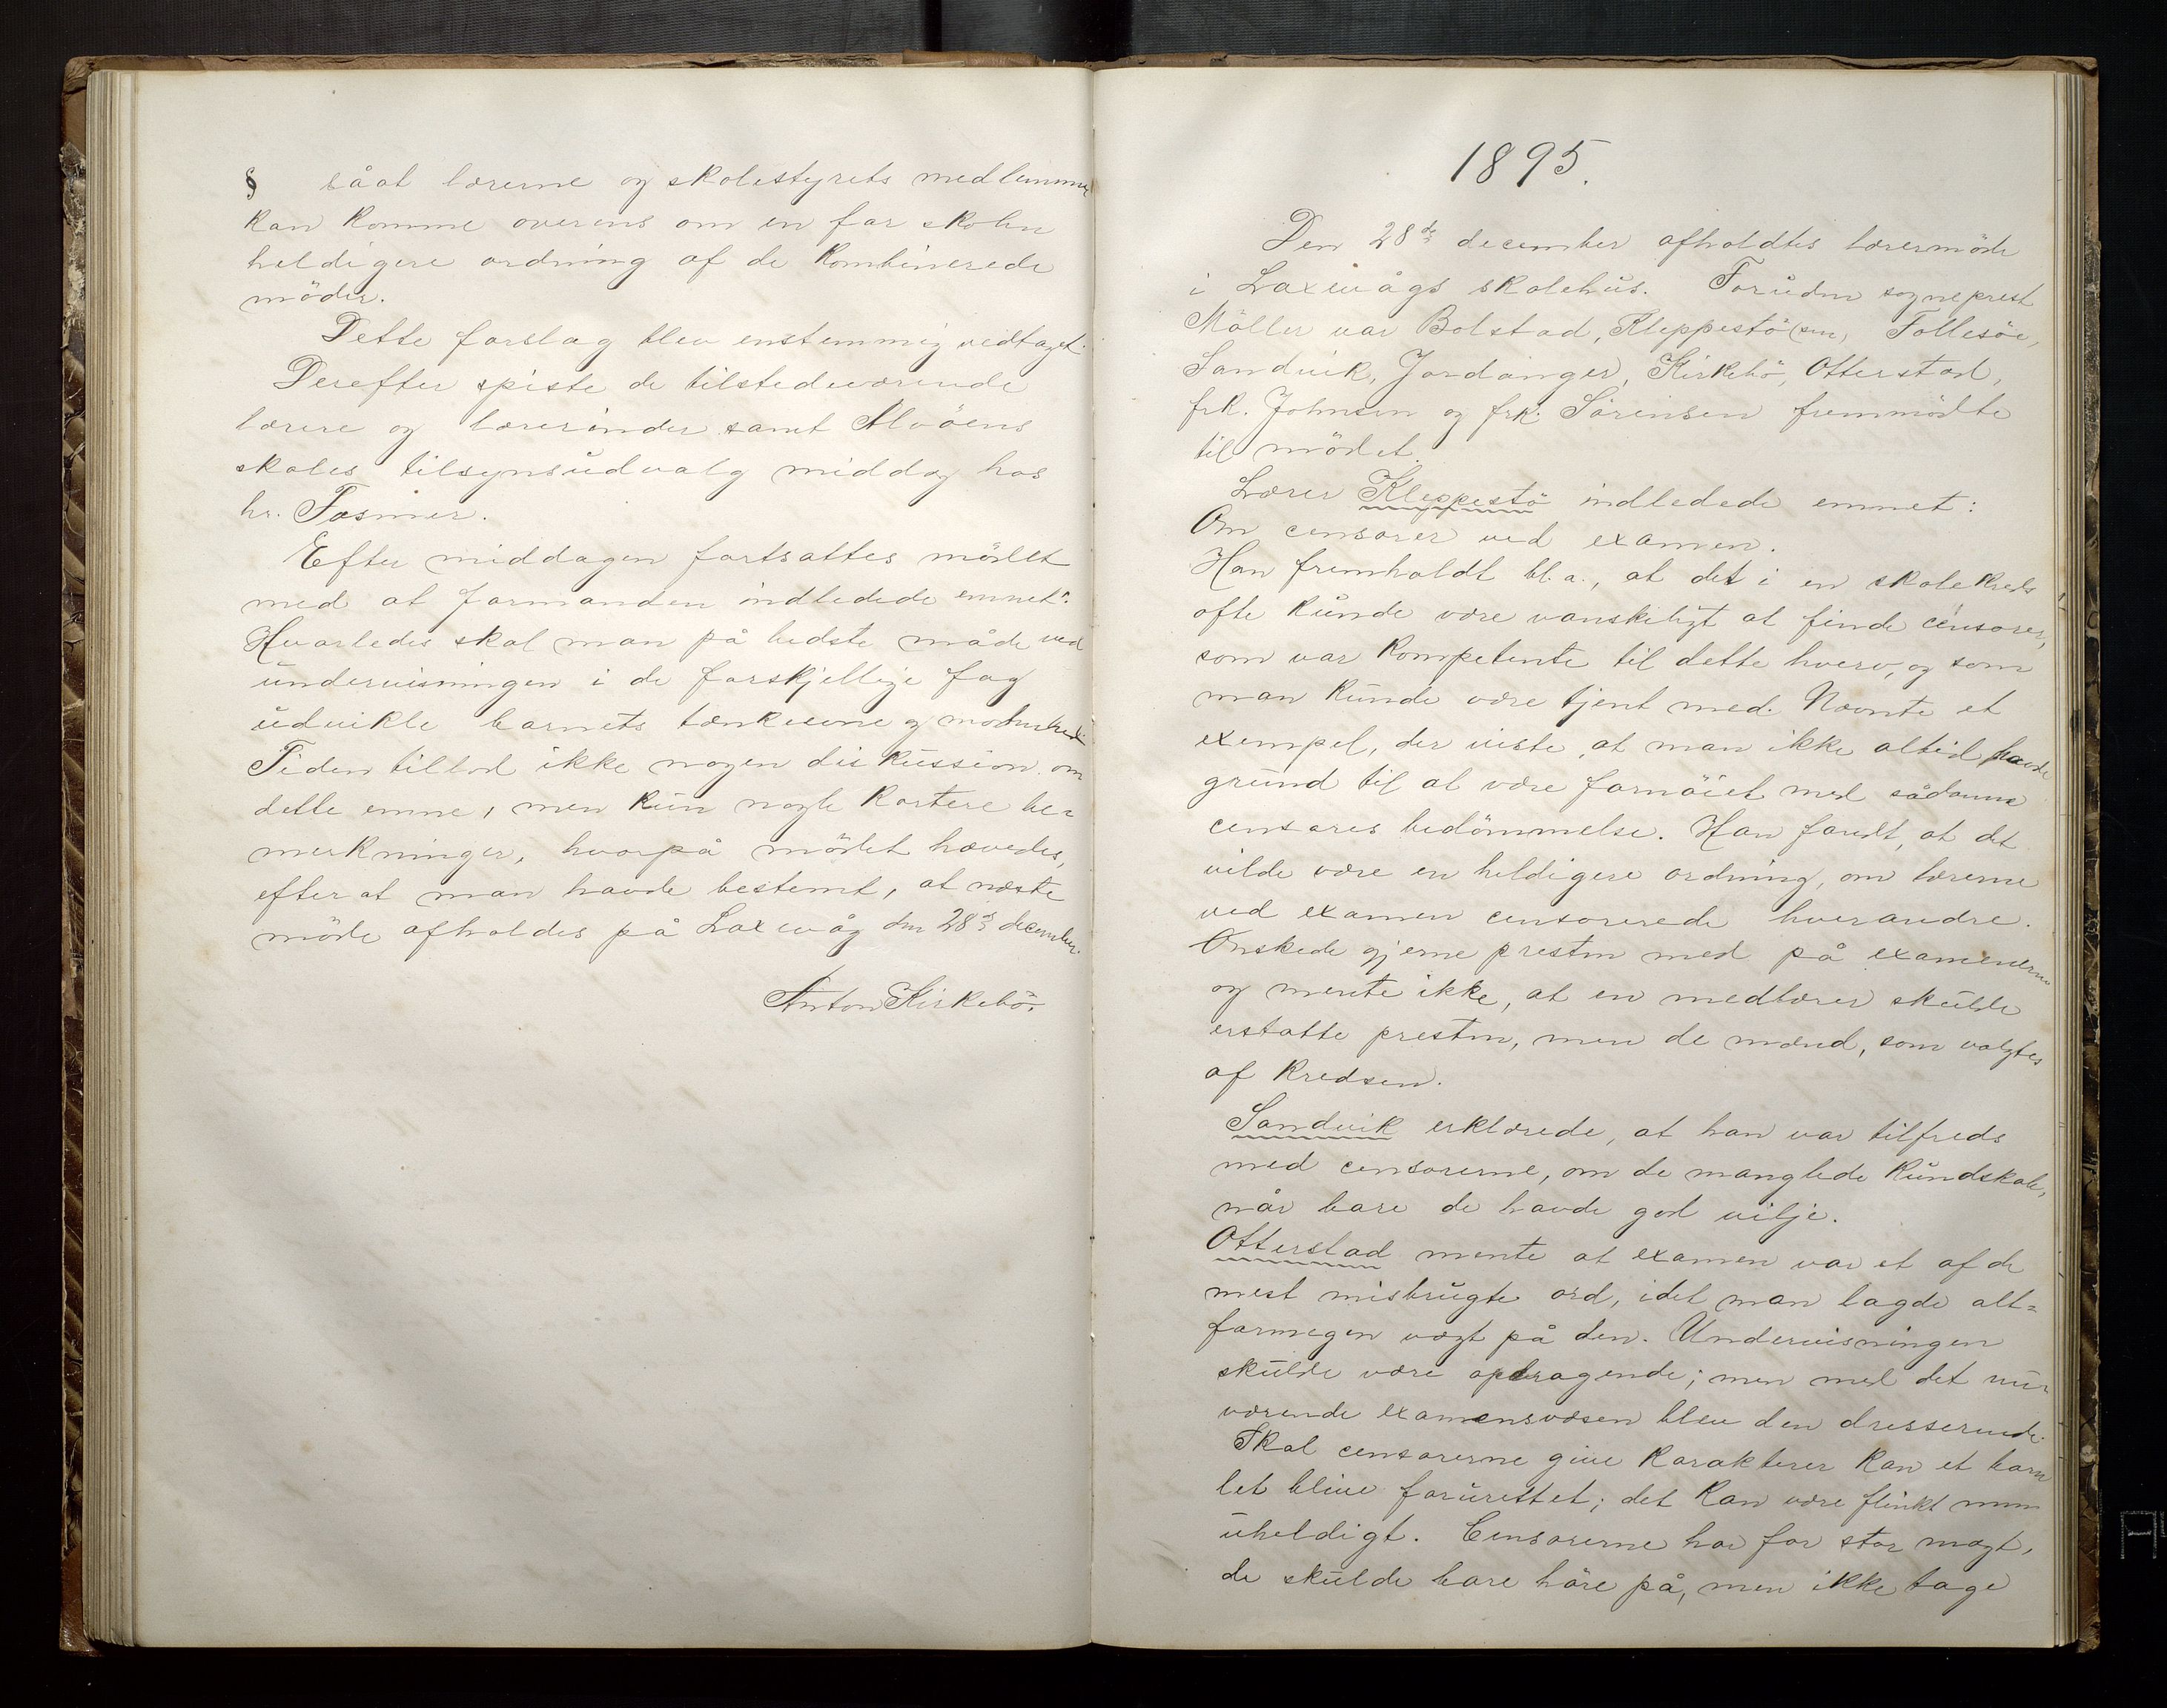 § såat lærerne og skolestyrets medlemmer
kan komme overens om en for skolen
heldigere ordning af de kombinerede
möder.
Dette forslag blev enstemmig vedtaget.
Derefter spiste de tilstedeværende
lærere og lærerinder samt Alvöens
skoles tilsynsudvalg middag hos
hr. Fasmer.
Efter middagen fortsattes mödet
med at formanden indledede emnet:
Hvorledes skal man på bedste måde ved
undervisningen i de forskjellige fag
udvikle barnets tænkeevne og
Tiden tillod ikke nogen diskussion om
dette emne, men kun nogle kortere be-
merkninger, hvorpå mödet hævedes,
efter at man havde bestemt, at næste
möde afholdes på Laxevåg den 28de december.
Anton Kirkebö.
1895.
Den 28de december afholdtes lærermöde
i Laxevågs skolehus. Foruden sogneprest
Möller var Bolstad, Kleppestö sen, Follesöe,
Sandvik, Jordanger, Kirkebö, Otterstad,
frk. Johnsen og frk. Sörensen fremmödte
til mödet.
Lærer Kleppestö indledede emnet:
Om censorer ved examen.
Han fremholdt bl. a., at det i en skolekreds
ofte kunde være vanskeligt at finde censorer,
som var kompetente til dette hverv, og som
man kunde være tjent med. Nævnte et
exempel, der viste, at man ikke altid havde
grund til at være fornöiet med sådanne
censores bedömmelse. Han fandt, at det
vilde være en heldigere ordning, om lærerne
ved examen censorerede hverandre.
Ønskede gjerne presten med på examenerne
og mente ikke, at en medlærer skulde
erstatte presten, men de mænd, som valgtes
af kredsen.
Sandvik erklærede, at han var tilfreds
med censorerne, om de manglede kundskab,
når bare de havde god vilje.
Otterstad mente at examen var et af de
mest misbrugte ord, idet man lagde alt=
formegen vægt på den. Undervisningen
skulde være opdragende; men med det nu-
værende examensvæsen blev den dresserende.
Skal censorerne give karakterer kan et barn
let blive forurettet; det kan være flinkt men
uheldigt. Censorerne har for stor magt,
de skulde bare höre på, men ikke tage